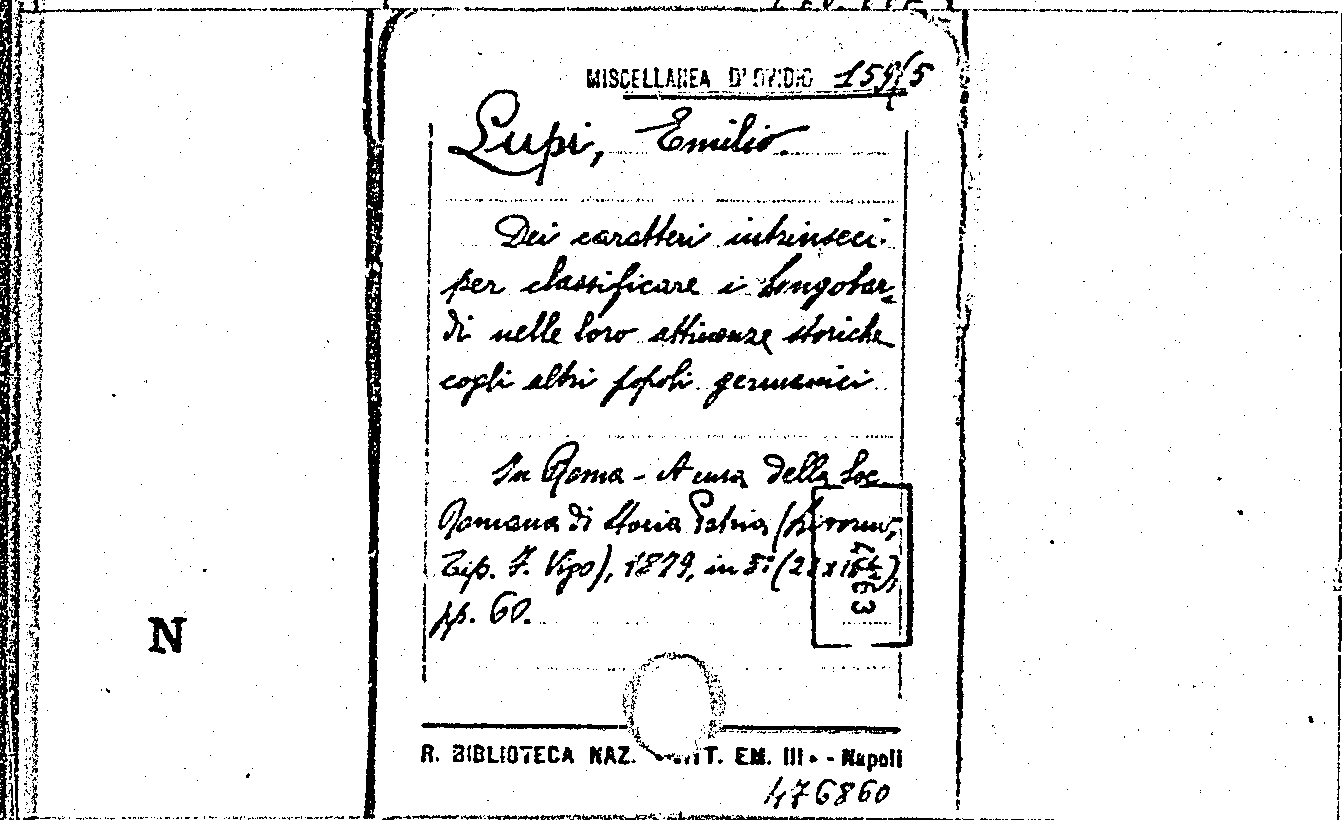 MISCELLANEA D'OVIDIO 159/5
Lupi, Emilio.
Dei caratteri intrinseci
per classificare i Longobar=
di nelle loro attinenze storiche
cogli altri popoli germanici
In Roma - A cura della Soc.
Romana di Storia Patria (Livorno,
Tip. F. Vigo), 1879, in 8°
pp. 60.
N
R. BIBLIOTECA NAZ. T. EM. III - Napoli
476860